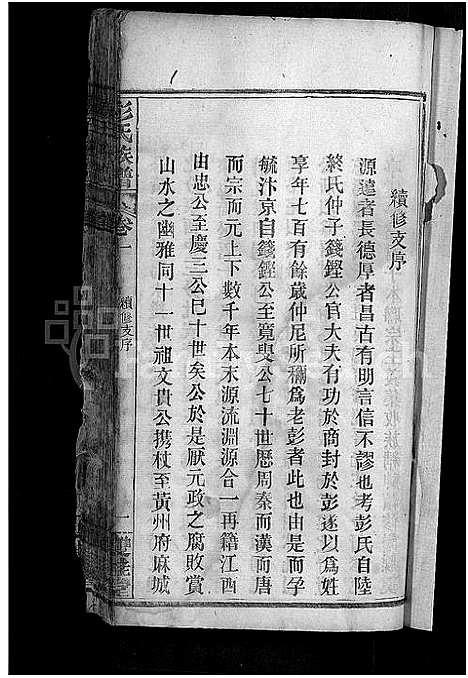 續修支序
源遠者長德厚者昌古有明言信不謬也考彭氏自陸
終氏仲子籛鏗公官大夫有功於商封於彭遂以爲姓
享年七百有餘歲仲尼所稱爲老彭者此也由是而孚
毓汴京自籛鏗公至寬叟公七十世歷周秦而漢而唐
而宗而元上下數千年本末源流淵源合一再籍江西
由忠公至慶三公巳十世矣公於是厭元政之腐敗賞
山水之幽雅同十一世祖文貴公携杖至黃州府麻城
彭氏族譜
卷一
續修支序
一